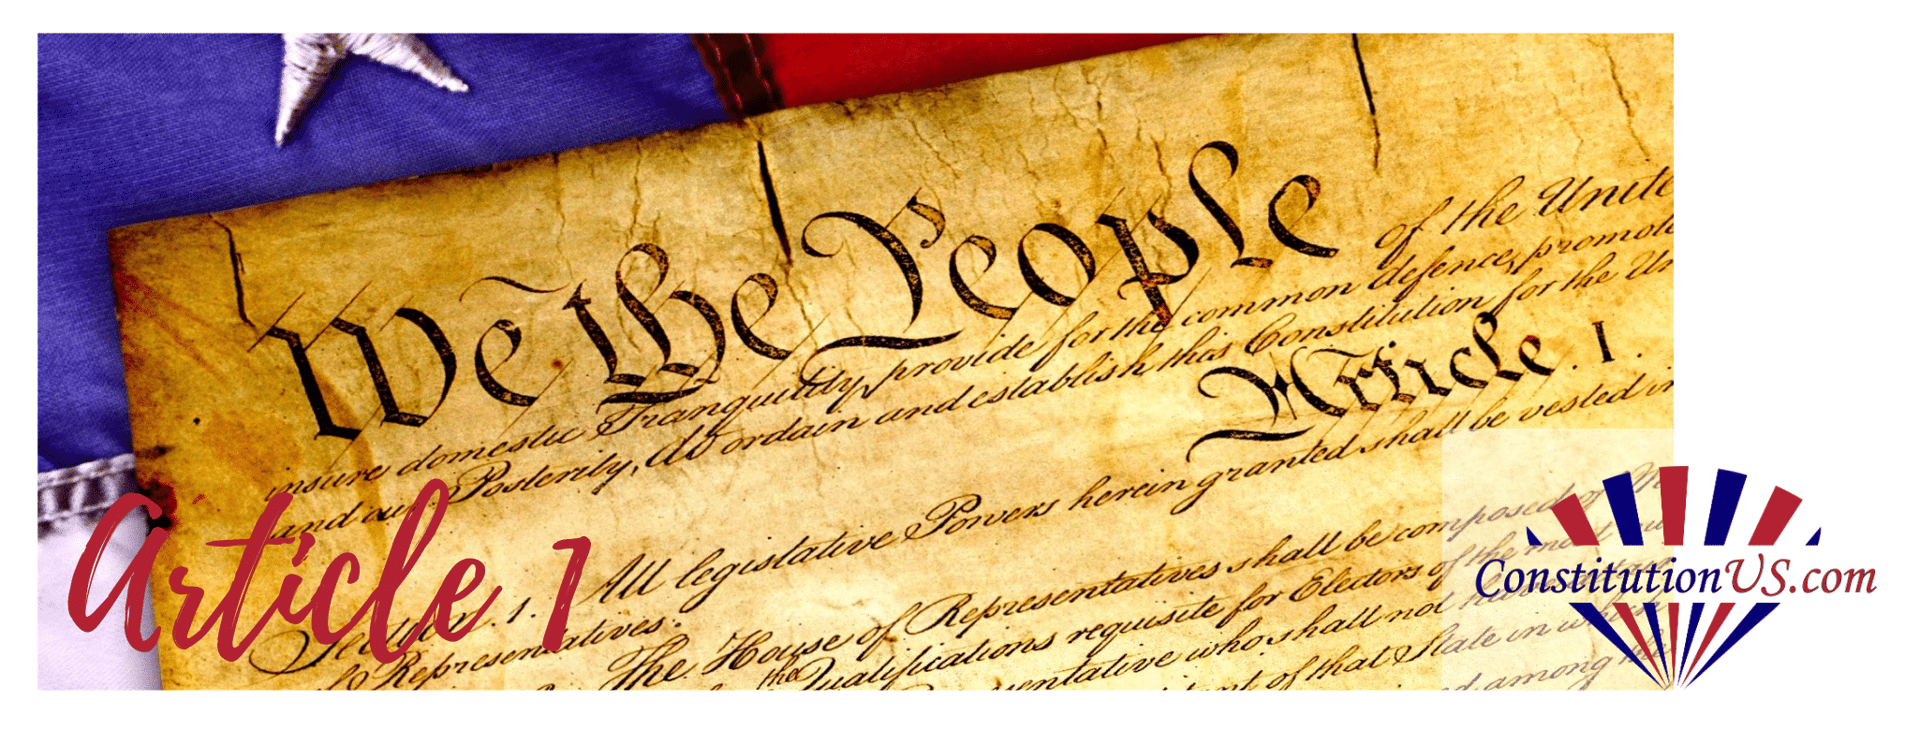 We the People
of the Unite
insure domestic Tranquility, provide for the common defence, promote
and our Posterity, do ordain and establish this Constitution for the Un
Article. I.
Section. 1. All legislative Powers herein granted shall be vested in
of Representatives.
The House of Representatives shall be composed of
the
Qualifications requisite for Electors of the most nu
Representative who shall not have
of that State in which
among the
Article 1
ConstitutionUS.com